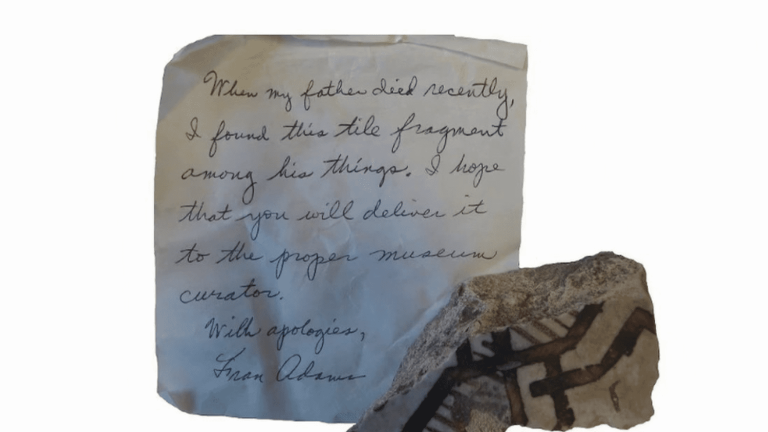 When my father died recently,
I found this tile fragment
among his things. I hope
that you will deliver it
to the proper museum
curator.
With apologies,
Fran Adams